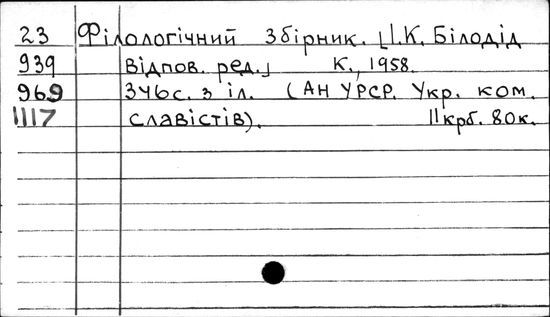 23 Філологічний збірник. [І.К. Білодід
939 відпов. ред.] К., 1958.
969 346с. з іл. (АН УРСР. Укр. ком.
1117 славістів). 11крб. 80к.